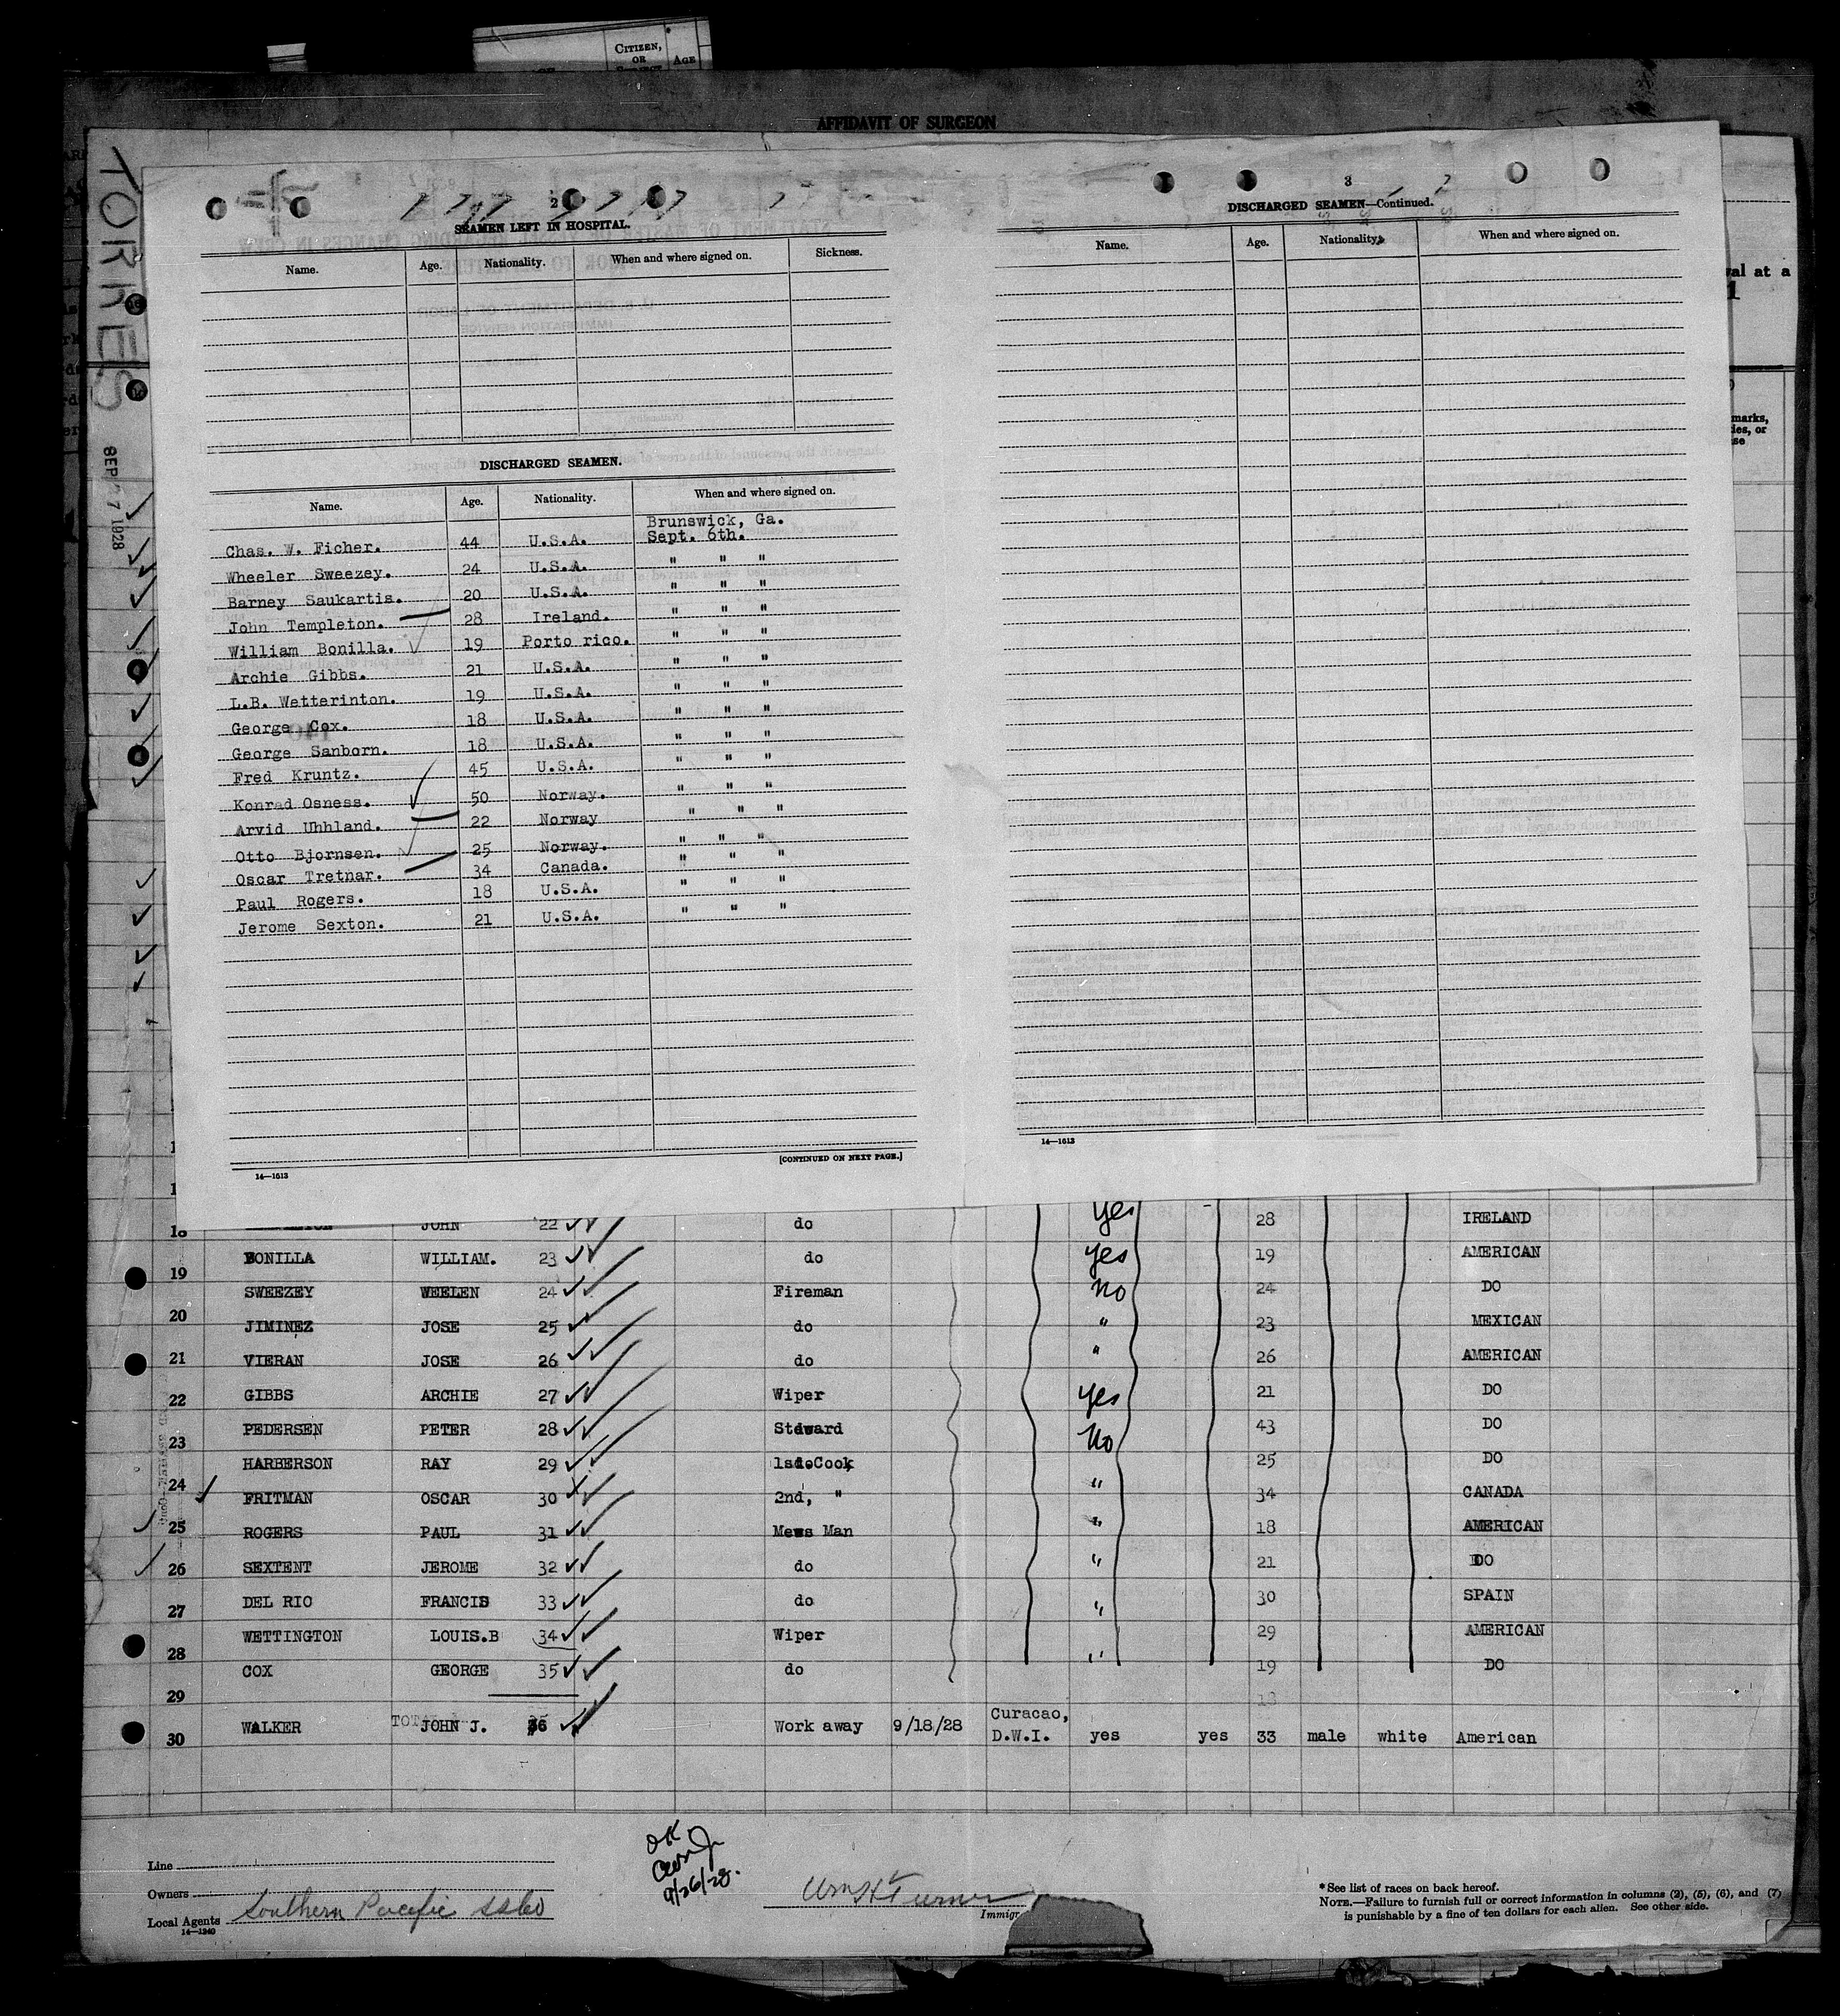 CITIZEN,
OR
AGE
AFFIDAVIT OF SURGEON
TORRES
SEP 27 1928
2
SEAMEN LEFT IN HOSPITAL.
Name. Age. Nationality. When and where signed on. Sickness.
DISCHARGED SEAMEN.
Name. Age. Nationality. When and where signed on.
Brunswick, Ga.
Chas. W. Ficher. 44 U.S.A. Sept. 6th.
Wheeler Sweezey. 24 U.S.A. " " "
Barney Saukartis. 20 U.S.A. " " "
John Templeton. 28 Ireland. " " "
William Bonilla. 19 Porto rico. " " "
Archie Gibbs. 21 U.S.A. " " "
L.B. Wetterinton. 19 U.S.A. " " "
George Cox. 18 U.S.A. " " "
George Sanborn. 18 U.S.A. " " "
Fred Kruntz. 45 U.S.A. " " "
Konrad Osness. 50 Norway. " " "
Arvid Uhhland. 22 Norway " " "
Otto Bjornsen. 25 Norway. " " "
Oscar Tretnar. 34 Canada. " " "
Paul Rogers. 18 U.S.A. " " "
Jerome Sexton. 21 U.S.A. " " "
[CONTINUED ON NEXT PAGE.]
14—1613
3
DISCHARGED SEAMEN—Continued.
Name. Age. Nationality. When and where signed on.
14—1613
val at a
marks,
ies, or
se
18 JOHN 22 do yes 28 IRELAND
19 BONILLA WILLIAM. 23 do yes 19 AMERICAN
SWEEZEY WEELEN 24 Fireman no 24 DO
20 JIMINEZ JOSE 25 do " 23 MEXICAN
21 VIERAN JOSE 26 do " 26 AMERICAN
22 GIBBS ARCHIE 27 Wiper yes 21 DO
23 PEDERSEN PETER 28 Steward No 43 DO
HARBERSON RAY 29 Cook 25 DO
24 FRITMAN OSCAR 30 2nd, " " 34 CANADA
25 ROGERS PAUL 31 Mess Man " 18 AMERICAN
26 SEXTENT JEROME 32 do " 21 DO
27 DEL RIO FRANCIS 33 do " 30 SPAIN
WETTINGTON LOUIS.B 34 Wiper 29 AMERICAN
28 COX GEORGE 35 do " 19 DO
29
Curacao,
30 WALKER JOHN J. 36 Work away 9/18/28 D.W.I. yes yes 33 male white American
OK
9/26/28.
Line
Owners
Local Agents Southern Pacific SS Co
14—1240
Wm H Turner
Immigr
*See list of races on back hereof.
NOTE.—Failure to furnish full or correct information in columns (2), (5), (6), and (7)
is punishable by a fine of ten dollars for each alien. See other side.